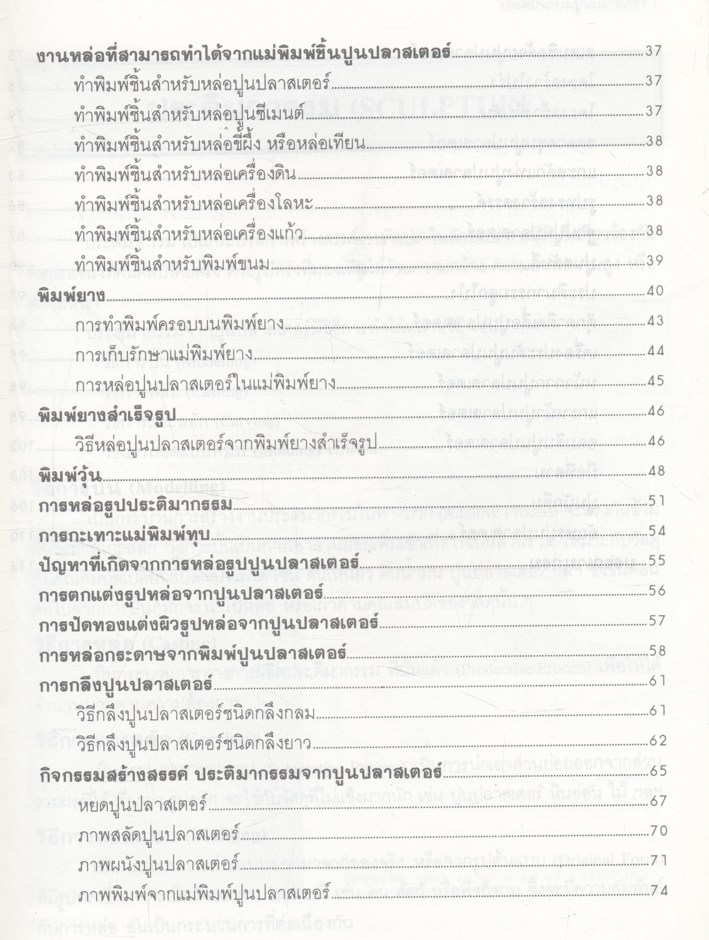 งานหล่อที่สามารถทำได้จากแม่พิมพ์ชิ้นปูนปลาสเตอร์ 37
ทำพิมพ์ชิ้นสำหรับหล่อปูนปลาสเตอร์ 37
ทำพิมพ์ชิ้นสำหรับหล่อปูนซีเมนต์ 37
ทำพิมพ์ชิ้นสำหรับหล่อขี้ผึ้ง หรือหล่อเทียน 38
ทำพิมพ์ชิ้นสำหรับหล่อเครื่องดิน 38
ทำพิมพ์ชิ้นสำหรับหล่อเครื่องโลหะ 38
ทำพิมพ์ชิ้นสำหรับหล่อเครื่องแก้ว 38
ทำพิมพ์ชิ้นสำหรับพิมพ์ขนม 39
พิมพ์ยาง 40
การทำพิมพ์ครอบบนพิมพ์ยาง 43
การเก็บรักษาแม่พิมพ์ยาง 44
การหล่อปูนปลาสเตอร์ในแม่พิมพ์ยาง 45
พิมพ์ยางสำเร็จรูป 46
วิธีหล่อปูนปลาสเตอร์จากพิมพ์ยางสำเร็จรูป 46
พิมพ์วุ้น 48
การหล่อรูปประติมากรรม 51
การกะเทาะแม่พิมพ์ทุบ 54
ปัญหาที่เกิดจากการหล่อรูปปูนปลาสเตอร์ 55
การตกแต่งรูปหล่อจากปูนปลาสเตอร์ 56
การปิดทองแต่งผิวรูปหล่อจากปูนปลาสเตอร์ 57
การหล่อกระดาษจากพิมพ์ปูนปลาสเตอร์ 58
การกลึงปูนปลาสเตอร์ 61
วิธีกลึงปูนปลาสเตอร์ชนิดกลึงกลม 61
วิธีกลึงปูนปลาสเตอร์ชนิดกลึงยาว 62
กิจกรรมสร้างสรรค์ ประติมากรรมจากปูนปลาสเตอร์ 65
หยดปูนปลาสเตอร์ 67
ภาพสลัดปูนปลาสเตอร์ 70
ภาพผนังปูนปลาสเตอร์ 71
ภาพพิมพ์จากแม่พิมพ์ปูนปลาสเตอร์ 74